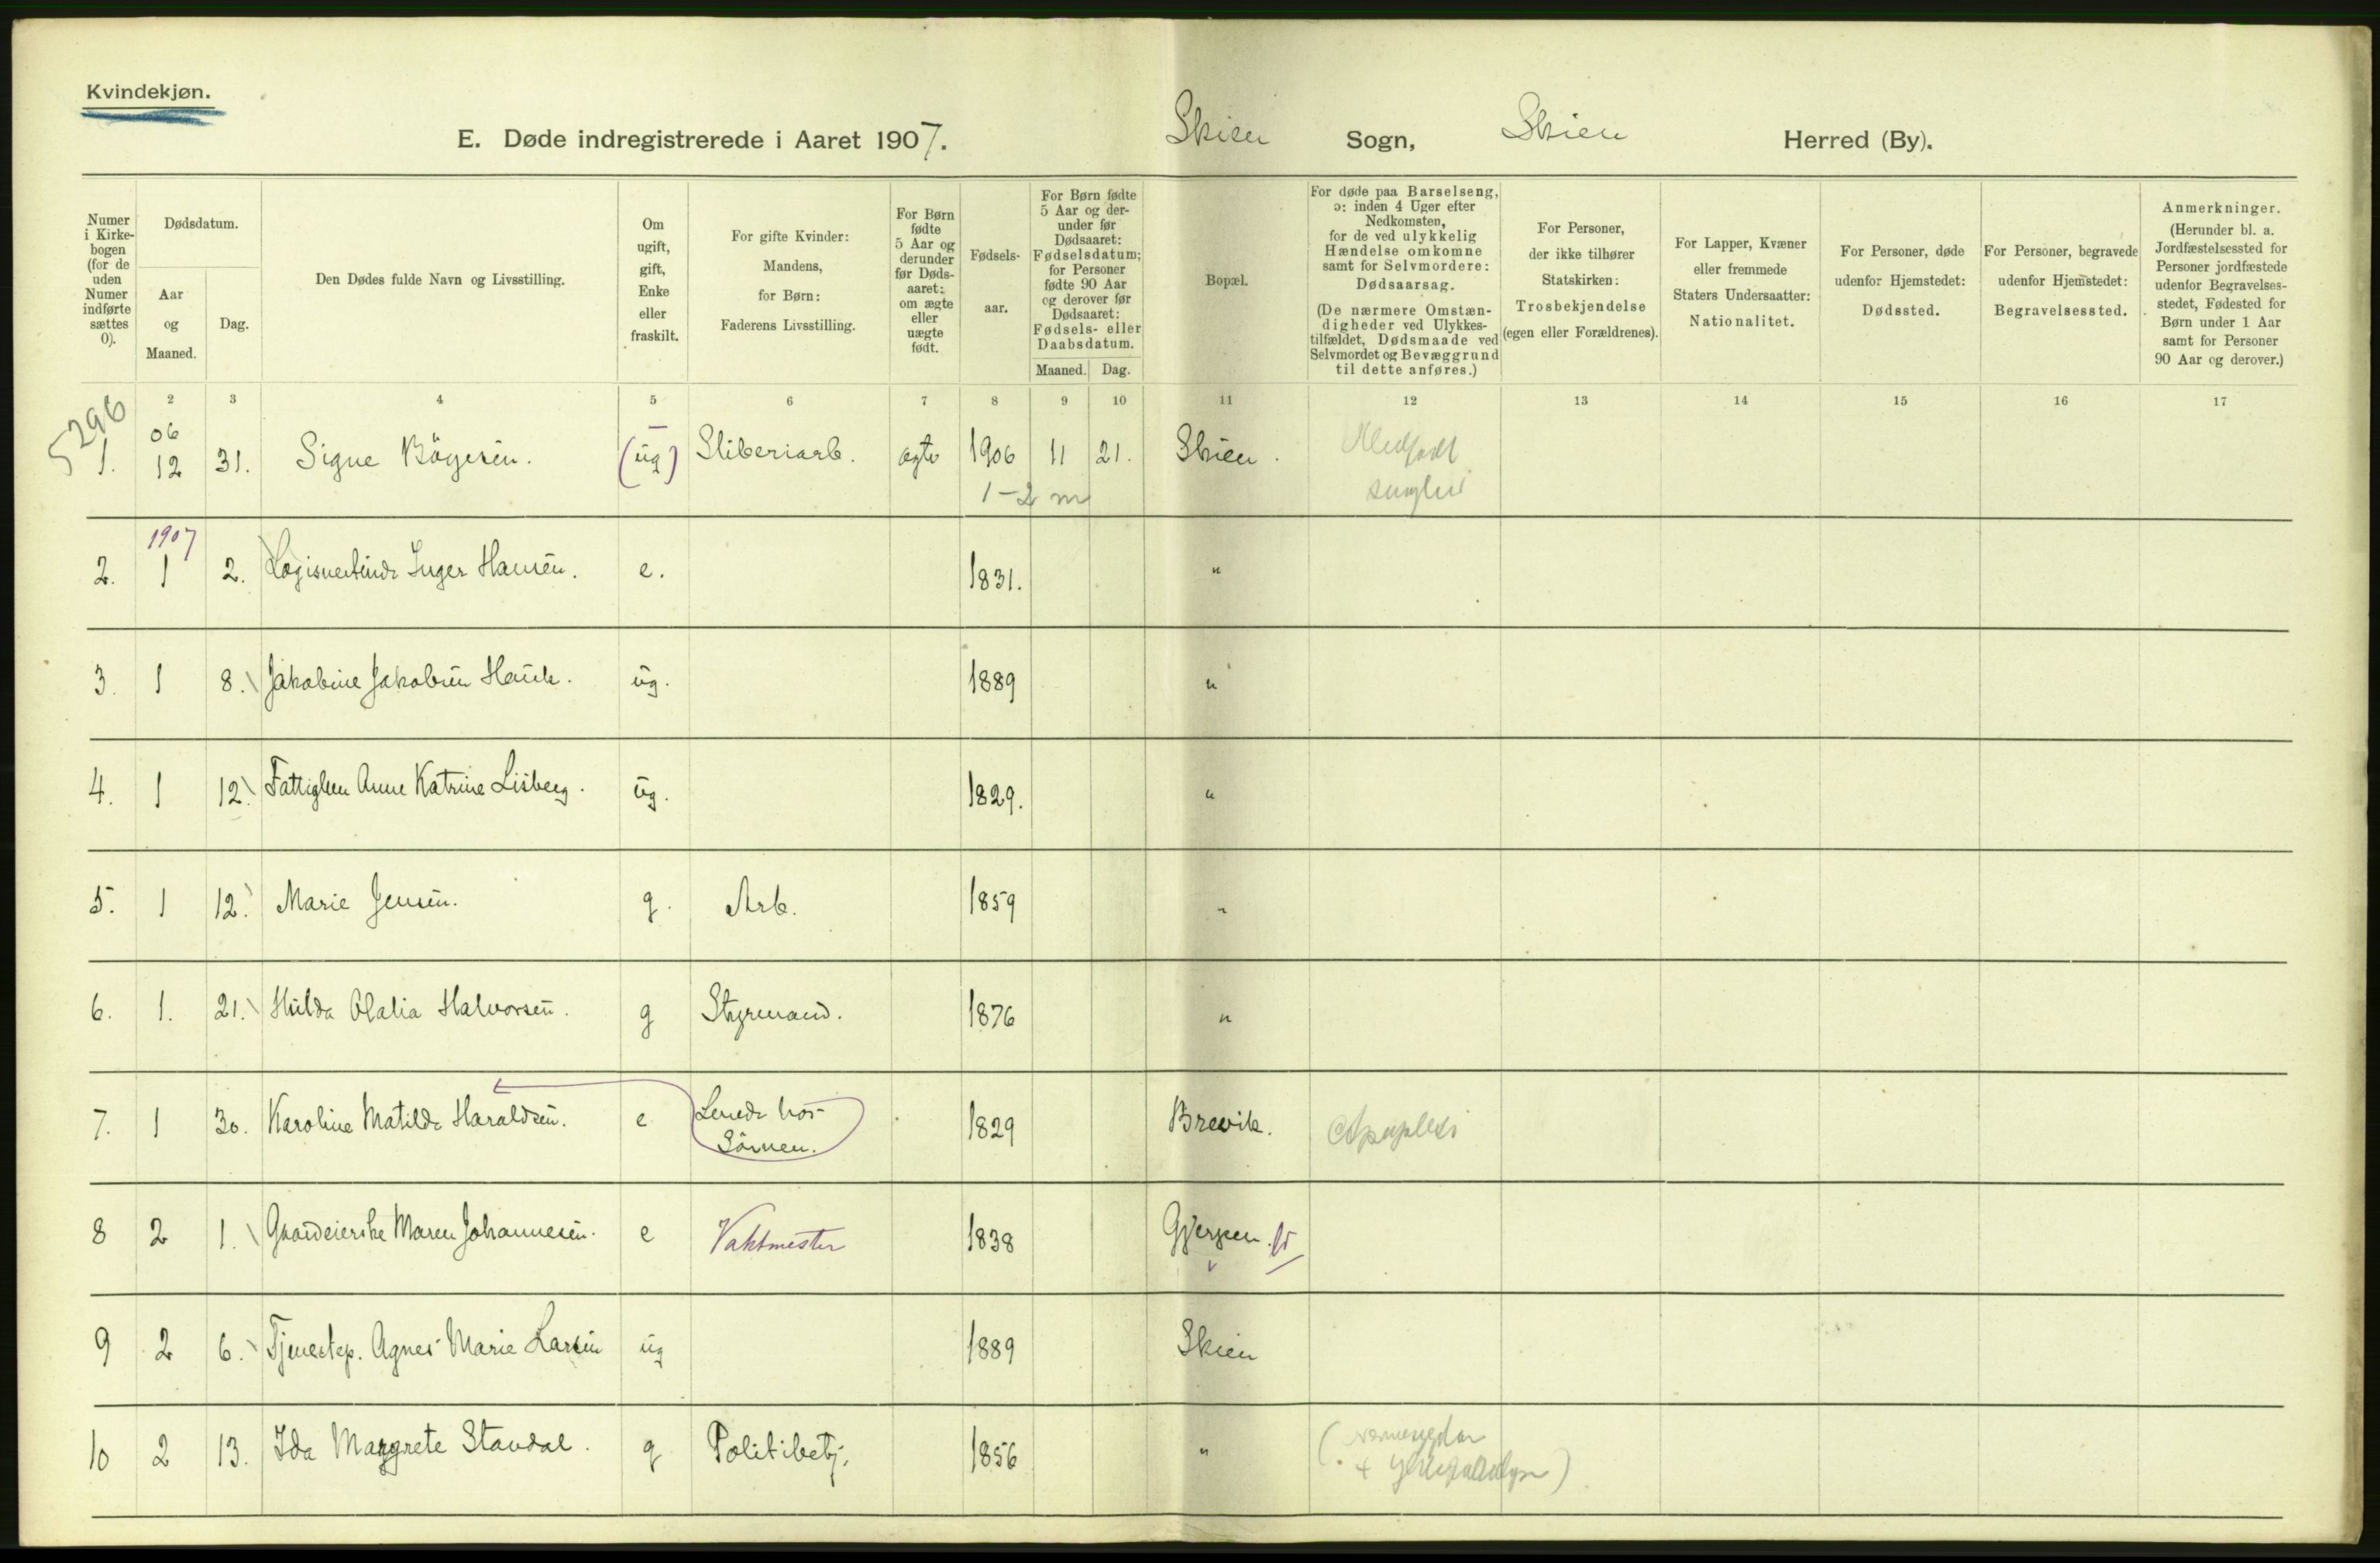 Kvindekjøn.
E. Døde indregistrerede i Aaret 1907. Skien Sogn, Skien Herred (By).
Numer i Kirke-bogen (for de uden Numer indførte sættes 0).
Dødsdatum.
Aar og Maaned.
Dag.
Den Dødes fulde Navn og Livsstilling.
Om ugift, gift, Enke eller fraskilt.
For gifte Kvinder: Mandens, for Børn: Faderens Livsstilling.
For Børn fødte 5 Aar og derunder før Døds-aaret: om ægte eller uægte født.
Fødsels-aar.
For Børn fødte 5 Aar og der-under før Dødsaaret: Fødselsdatum; for Personer fødte 90 Aar og derover før Dødsaaret: Fødsels- eller Daabsdatum.
Maaned. Dag.
Bopæl.
For døde paa Barselseng, ɔ: inden 4 Uger efter Nedkomsten, for de ved ulykkelig Hændelse omkomne samt for Selvmordere: Dødsaarsag.
(De nærmere Omstæn-digheder ved Ulykkes-tilfældet, Dødsmaade ved Selvmordet og Bevæggrund til dette anføres.)
For Personer, der ikke tilhører Statskirken: Trosbekjendelse (egen eller Forældrenes).
For Lapper, Kvæner eller fremmede Staters Undersaatter: Nationalitet.
For Personer, døde udenfor Hjemstedet: Dødssted.
For Personer, begravede udenfor Hjemstedet: Begravelsessted.
Anmerkninger. (Herunder bl. a. Jordfæstelsessted for Personer jordfæstede udenfor Begravelses-stedet, Fødested for Børn under 1 Aar samt for Personer 90 Aar og derover.)
2 3 4 5 6 7 8 9 10 11 12 13 14 15 16 17
5296
06
1. 12 31. Signe Böyesen. (ug) Sliberiarb. ægte 1906 11 21. Skien. Medfødt
1-2 m
1907
2. 1 2. Inger Hansen. e. 1831. "
3. 1 8. Jakobine Jakobsen Hauk. ug. 1889 "
4. 1 12. Fattiglem Anne Katrine Lisberg. ug. 1829. "
5. 1 12. Marie Jensen. g. Arb. 1859 "
6. 1. 21. Hulda Olalia Halvorsen. g Styrmand. 1876 "
7. 1 30. Karoline Matilde Haraldsen. e Levede hos 1829 Brevik. Apoplexi
Sönnen.
8 2 1. Gaardeierske Maren Johannesen. e Vaktmester 1838 Gjerpen.
9 2 6. Tjenestep. Agnes Marie Larsen ug 1889 Skien
10 2 13. Ida Margrete Stavdal. g Politibetj. 1856 "